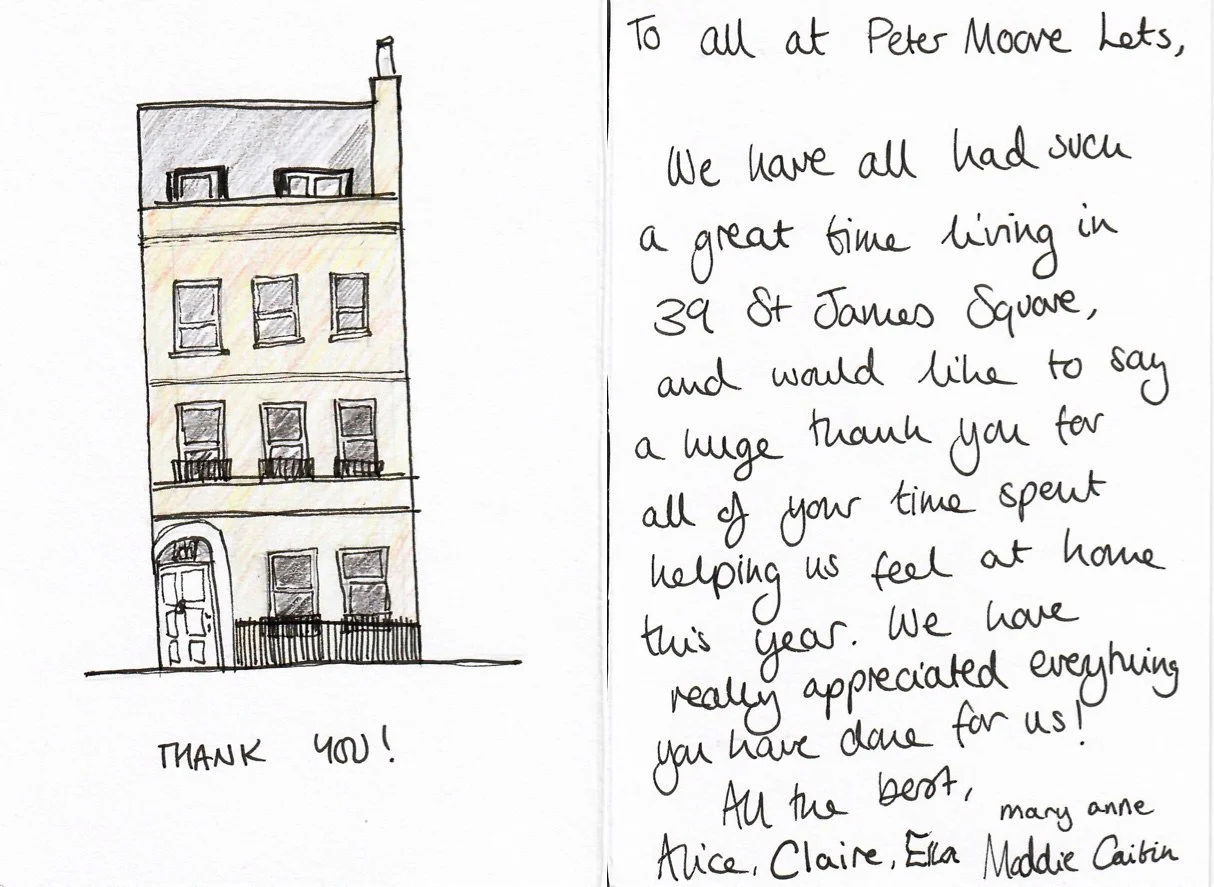 THANK YOU!
To all at Peter Moore Lets,
We have all had such
a great time living in
39 St James Square,
and would like to say
a huge thank you for
all of your time spent
helping us feel at home
this year. We have
really appreciated eveything
you have done for us!
All the best,
mary anne
Alice, Claire, Ella Maddie Caitlin